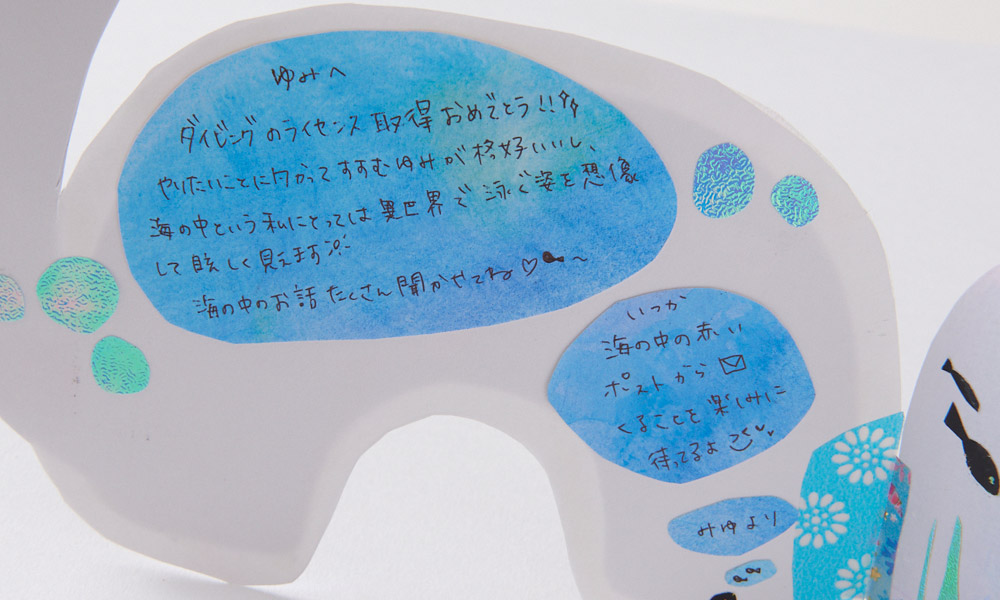 ゆみへ
ダイビングのライセンス取得おめでとう!!
やりたいことに向かってすすむゆみが格好いいし、
海の中という私にとっては異世界で泳ぐ姿を想像
して眩しく見えます
海の中のお話たくさん聞かせてね♡〜
いつか
海の中の赤い
ポストから✉
くることを楽しみに
待ってるよ
みゆより